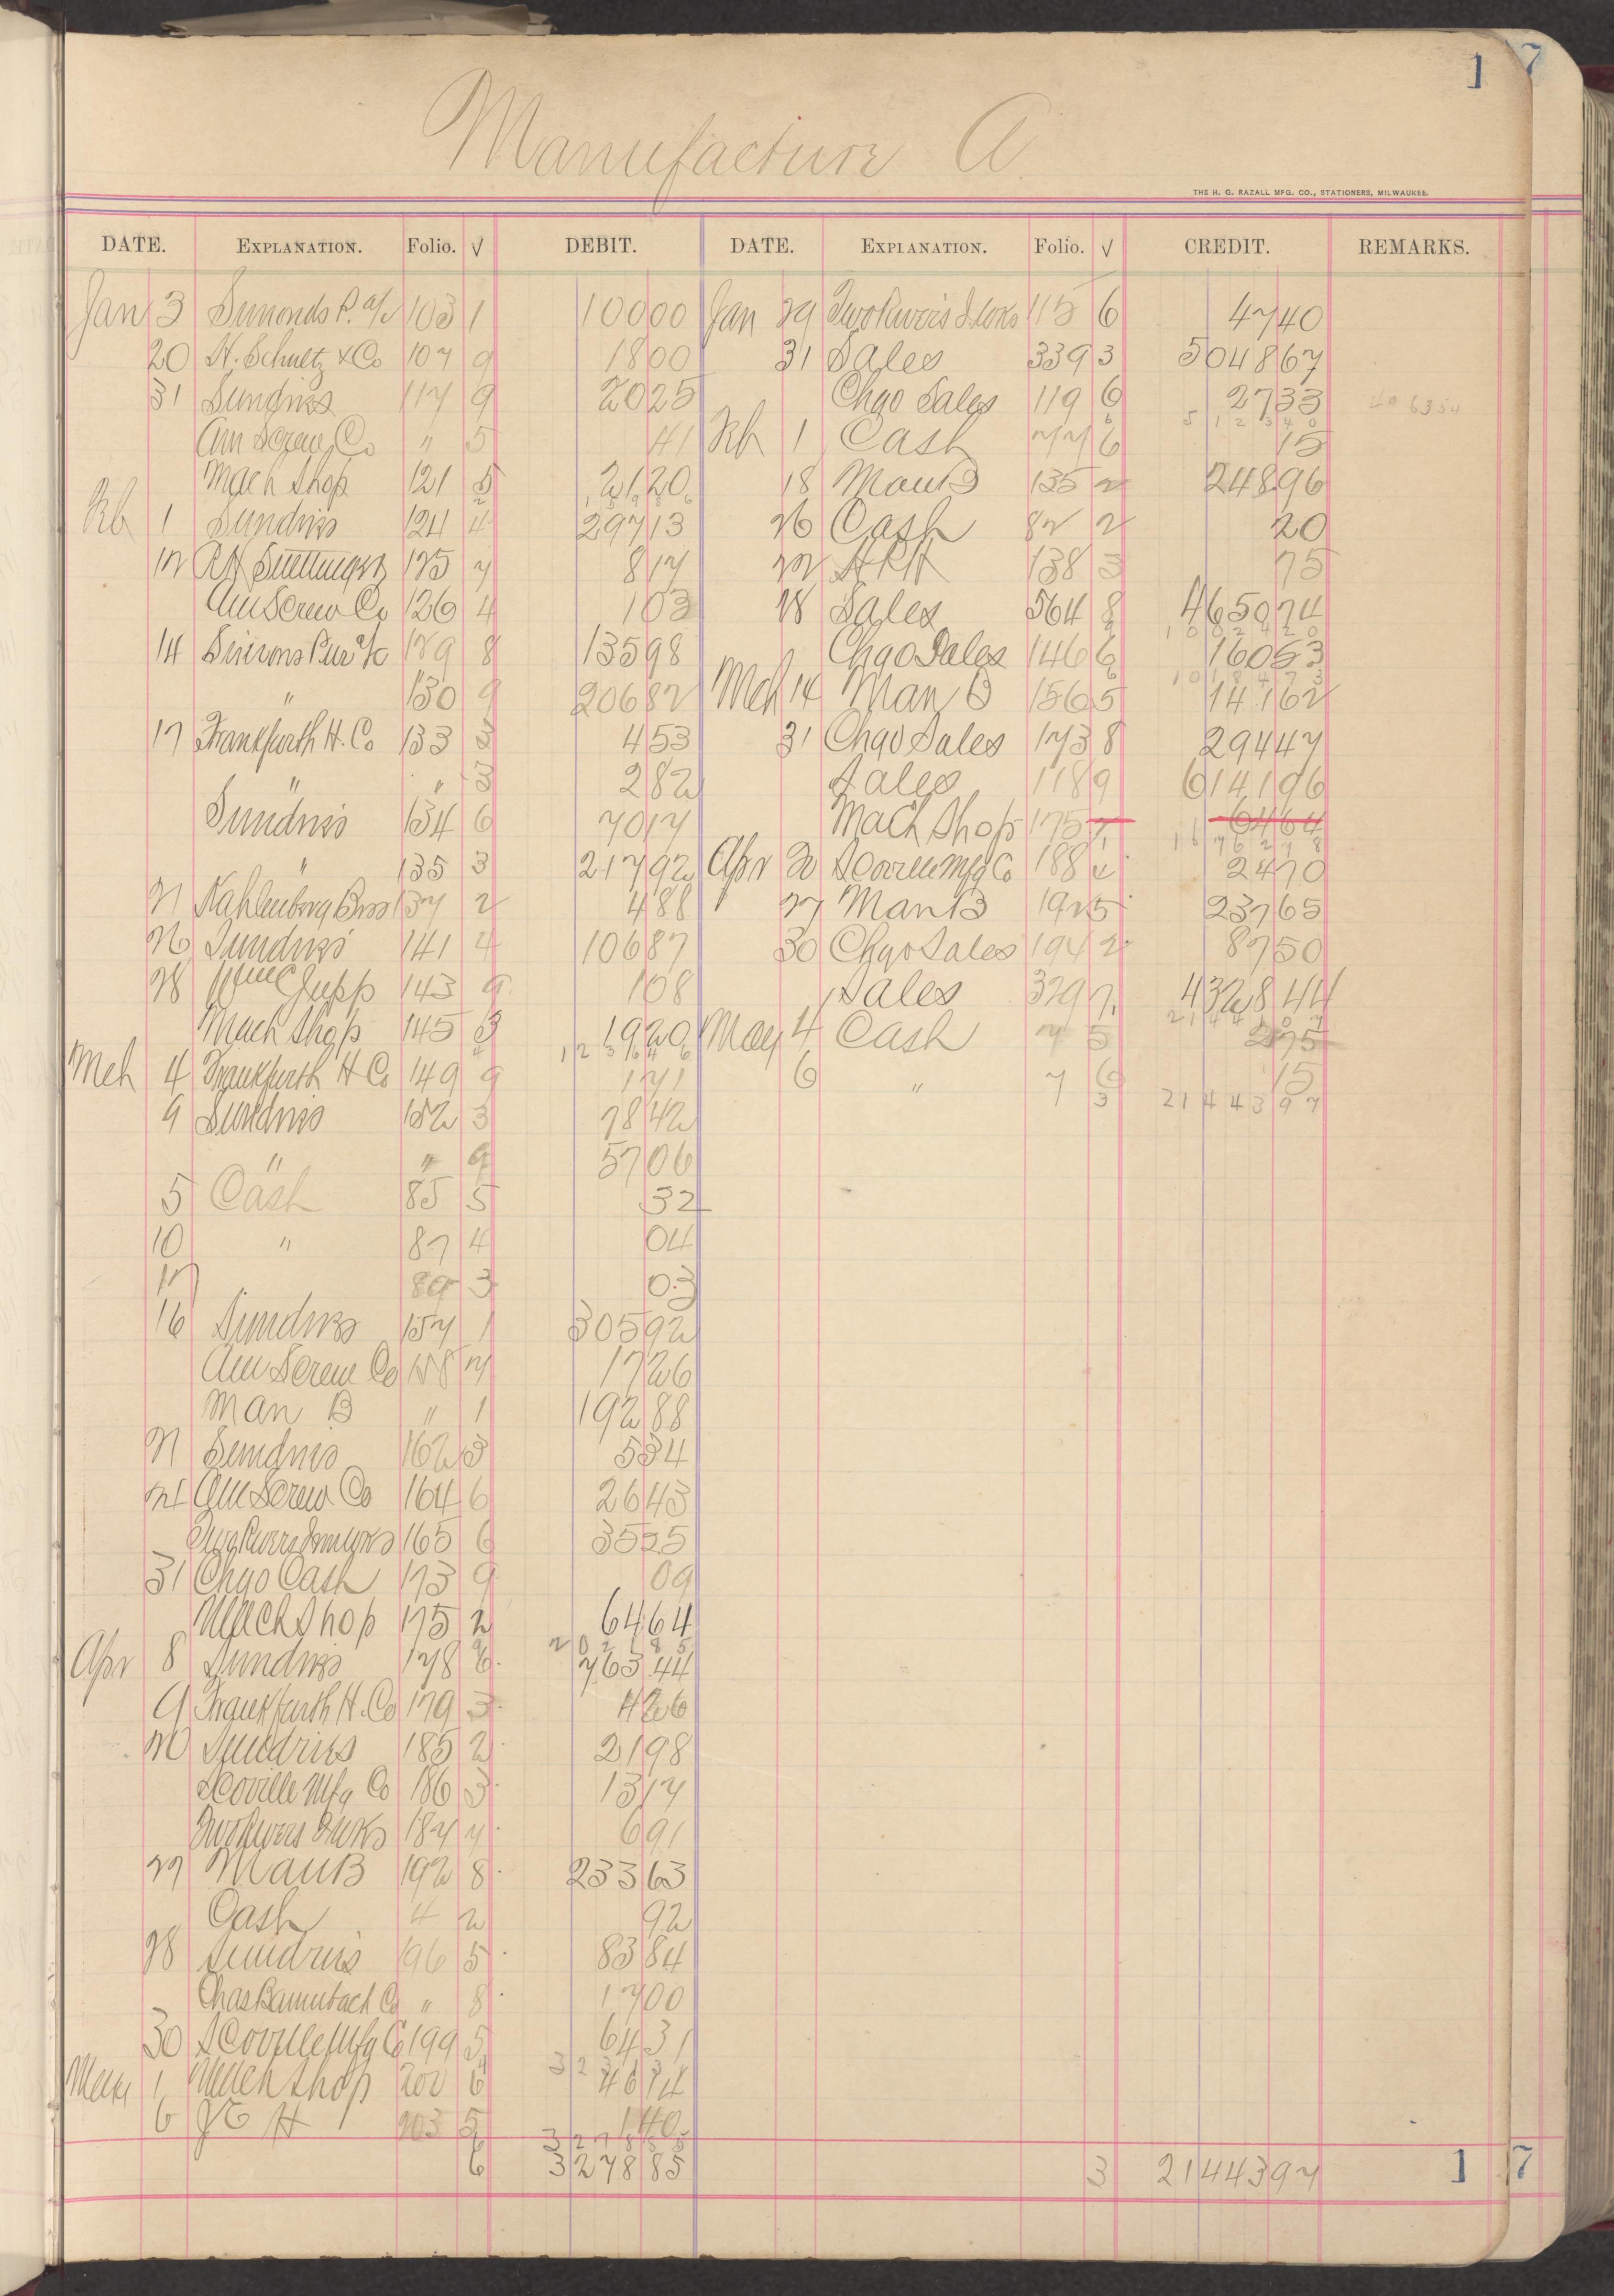 1 7
Manufacture A
THE H. G. RAZALL MFG. CO., STATIONERS, MILWAUKEE.
DATE. EXPLANATION. Folio. √ DEBIT. DATE. EXPLANATION. Folio. √ CREDIT. REMARKS.
Jan 3 Simonds P. a/c 103 1 100 00 Jan 29 Two Rivers I. Wks 115 6 47 40
20 H. Schultz & Co 107 9 18 00 31 Sales 339 3 5048 67
31 Sundries 117 9 20 25 Chgo Sales 119 6 27 33
Am Screw Co " 5 41 Feb 1 Cash 77 6 15
5 1 2 3 4 0
Mach Shop 121 5 21 20 18 Man B 135 2 248 96
Feb 1 Sundries 124 4 297 13 26 Cash 82 2 20
12 125 7 8 17 22 138 3 75
Am Screw Co 126 4 1 03 28 Sales 564 8 4650 74
14 Simons Pur a/c 129 8 135 98 Chgo Sales 146 6 160 53
" 130 9 206 82 Mch 14 Man B 156 5 141 62
17 Frankfurth H. Co 133 3 4 53 31 Chgo Sales 173 8 294 47
" " 3 2 82 Sales 118 9 6141 96
Sundries 134 6 70 17 Mach Shop 175 64 64
" 135 3 217 92 Apr 20 Scoville Mfg Co 188 24 70
21 Kahlenberg Bros 137 2 4 88 27 Man B 192 5 237 65
26 Sundries 141 4 106 87 30 Chgo Sales 194 2 87 50
28 143 9 1 08 Sales 329 7 4328 44
Mach Shop 145 3 19 20 May 4 Cash 7 5 2 75
Mch 4 Frankfurth H Co 149 9 1 71 6 " 7 6 15
9 Sundries 152 3 78 42 3 21 4 4 3 9 7
" " 9 57 06
5 Cash 85 5 32
10 " 87 4 04
17 89 3 03
16 Sundries 157 1 305 92
Am Screw Co 158 7 17 26
Man B " 1 192 88
21 Sundries 162 3 5 34
24 Am Screw Co 164 6 26 43
165 6 35 25
31 Chgo Cash 173 9 09
Mach Shop 175 2 64 64
Apr 8 Sundries 178 6 763 44
9 Frankfurth H. Co 179 3 4 26
20 Sundries 185 2 21 98
Scoville Mfg Co 186 3 13 17
Two Rivers I Wks 187 7 6 91
27 Man B 192 8 233 63
Cash 4 2 92
28 Sundries 196 5 83 84
Chas Baumbach Co " 8 17 00
30 Scoville Mfg Co 199 5 64 31
May 1 Mach Shop 202 6
6 203 5 1 40
6 3278 85 3 21443 97 1 7